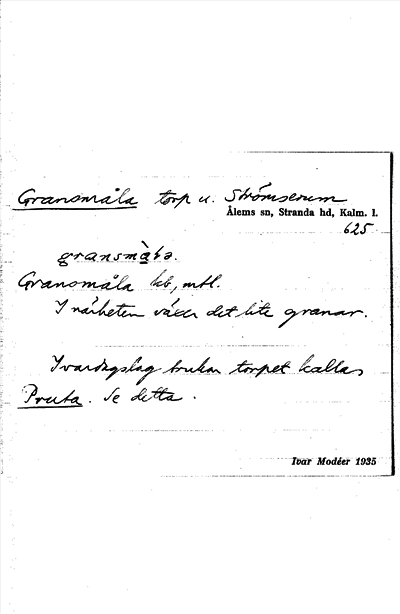 Gransmåla torp u. Strömserum
Ålems sn, Stranda hd, Kalm. l.
625
gransmå̀lə.
Gransmåla kb, mtl.
I närheten växer det lite granar.
I vardagslag brukar torpet kallas
Pruta. Se detta.
Ivar Modéer 1935